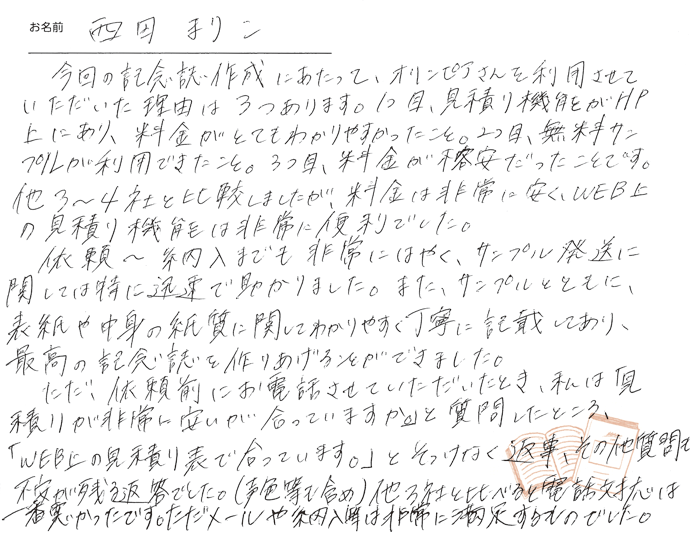 お名前 西田 まリン
今回の記念誌作成にあたって、オリンピアさんを利用させて
いただいた理由は3つあります。1つ目、見積り機能がHP
上にあり、料金がとてもわかりやすかったこと。2つ目、無料サン
プルが利用できたこと。3つ目、料金が格安だったことです。
他3〜4社と比較しましたが、料金は非常に安く、WEB上
の見積り機能は非常に便利でした。
依頼〜納入までも非常にはやく、サンプル発送に
関しては特に迅速で助かりました。また、サンプルとともに、
表紙や中身の紙質に関してわかりやすく丁寧に記載してあり、
最高の記念誌を作りあげることができました。
ただ、依頼前にお電話させていただいたとき、私は「見
積りが非常に安いが合っていますか」と質問したところ、
「WEB上の見積り表で合っています。」とそっけなく返事、その他質問も
不安が残る返答でした。(声色等も含め)他3社と比べると電話対応は
一番悪かったです。ただメールや納入時は非常に満足するものでした。